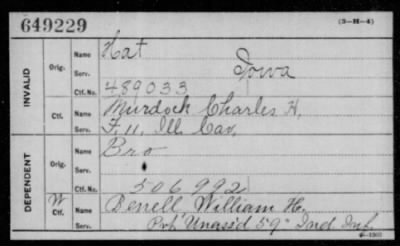 649229 (3-H-4)
INVALID
Orig. Name Hat
Serv. Iowa
Ctf. No. 489033
Ctf. Name Murdock Charles H,
Serv. F. 11, Ill. Cav,
DEPENDENT
Orig. Name Bro
Serv.
Ctf. No. 506992
W Ctf. Name William H.
Serv. Pvt Unass'd 59" Ind Inf.